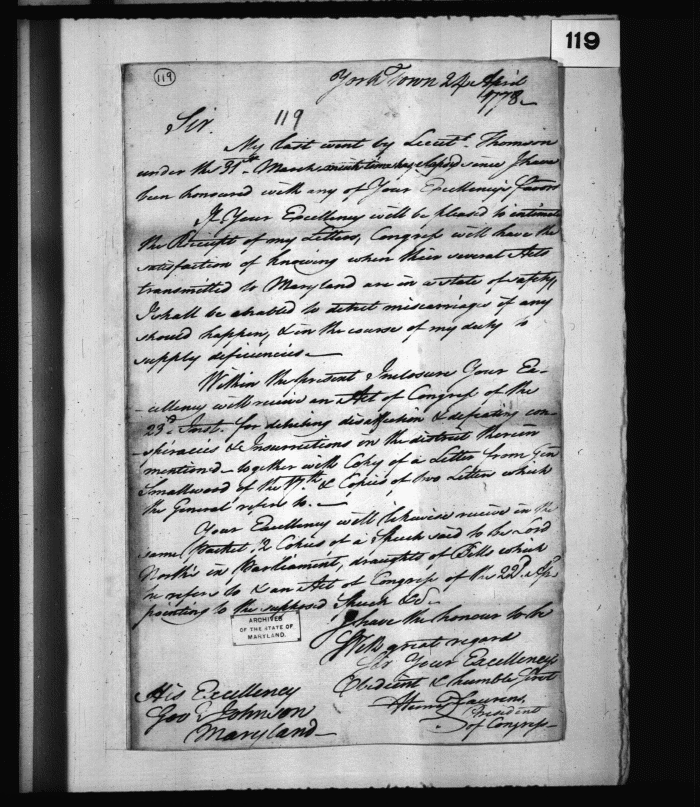 119
119
York Town 24 April
1778—
Sir.
119
My last went by Lieut. Thomson
under the 31st March since I have
been honoured with any of Your Excellency's favors
If Your Excellency will be pleased to intimate
the Receipt of my Letters, Congress will have the
satisfaction of knowing when their several Acts
transmitted to Maryland are in a state of safety,
I shall be enabled to detect miscarriages if any
should happen, & in the course of my duty to
supply deficiencies—
Within the present Inclosure Your Ex-
-cellency will receive an Act of Congress of the
23d Inst. for detecting disaffection & defeating con-
-spiracies & Insurrections in the district therein
mentioned— together with Copy of a Letter from Gen
Smallwood of the 17th & Copies of two Letters which
the General refers to.—
Your Excellency will likewise receive in the
same Packet, 2 Copies of a Speech said to be Lord
North's in Parliament, draughts of Bills which
he refers to & an Act of Congress of the 22d
to the supposed Speech &c—
I have the honour to be
With great regard
Sir Your Excellency's
Obedient & humble Servt
Henry Laurens,
President
of Congress—
His Excellency
Gov Johnson
Maryland—
ARCHIVES
OF THE STATE OF
MARYLAND.